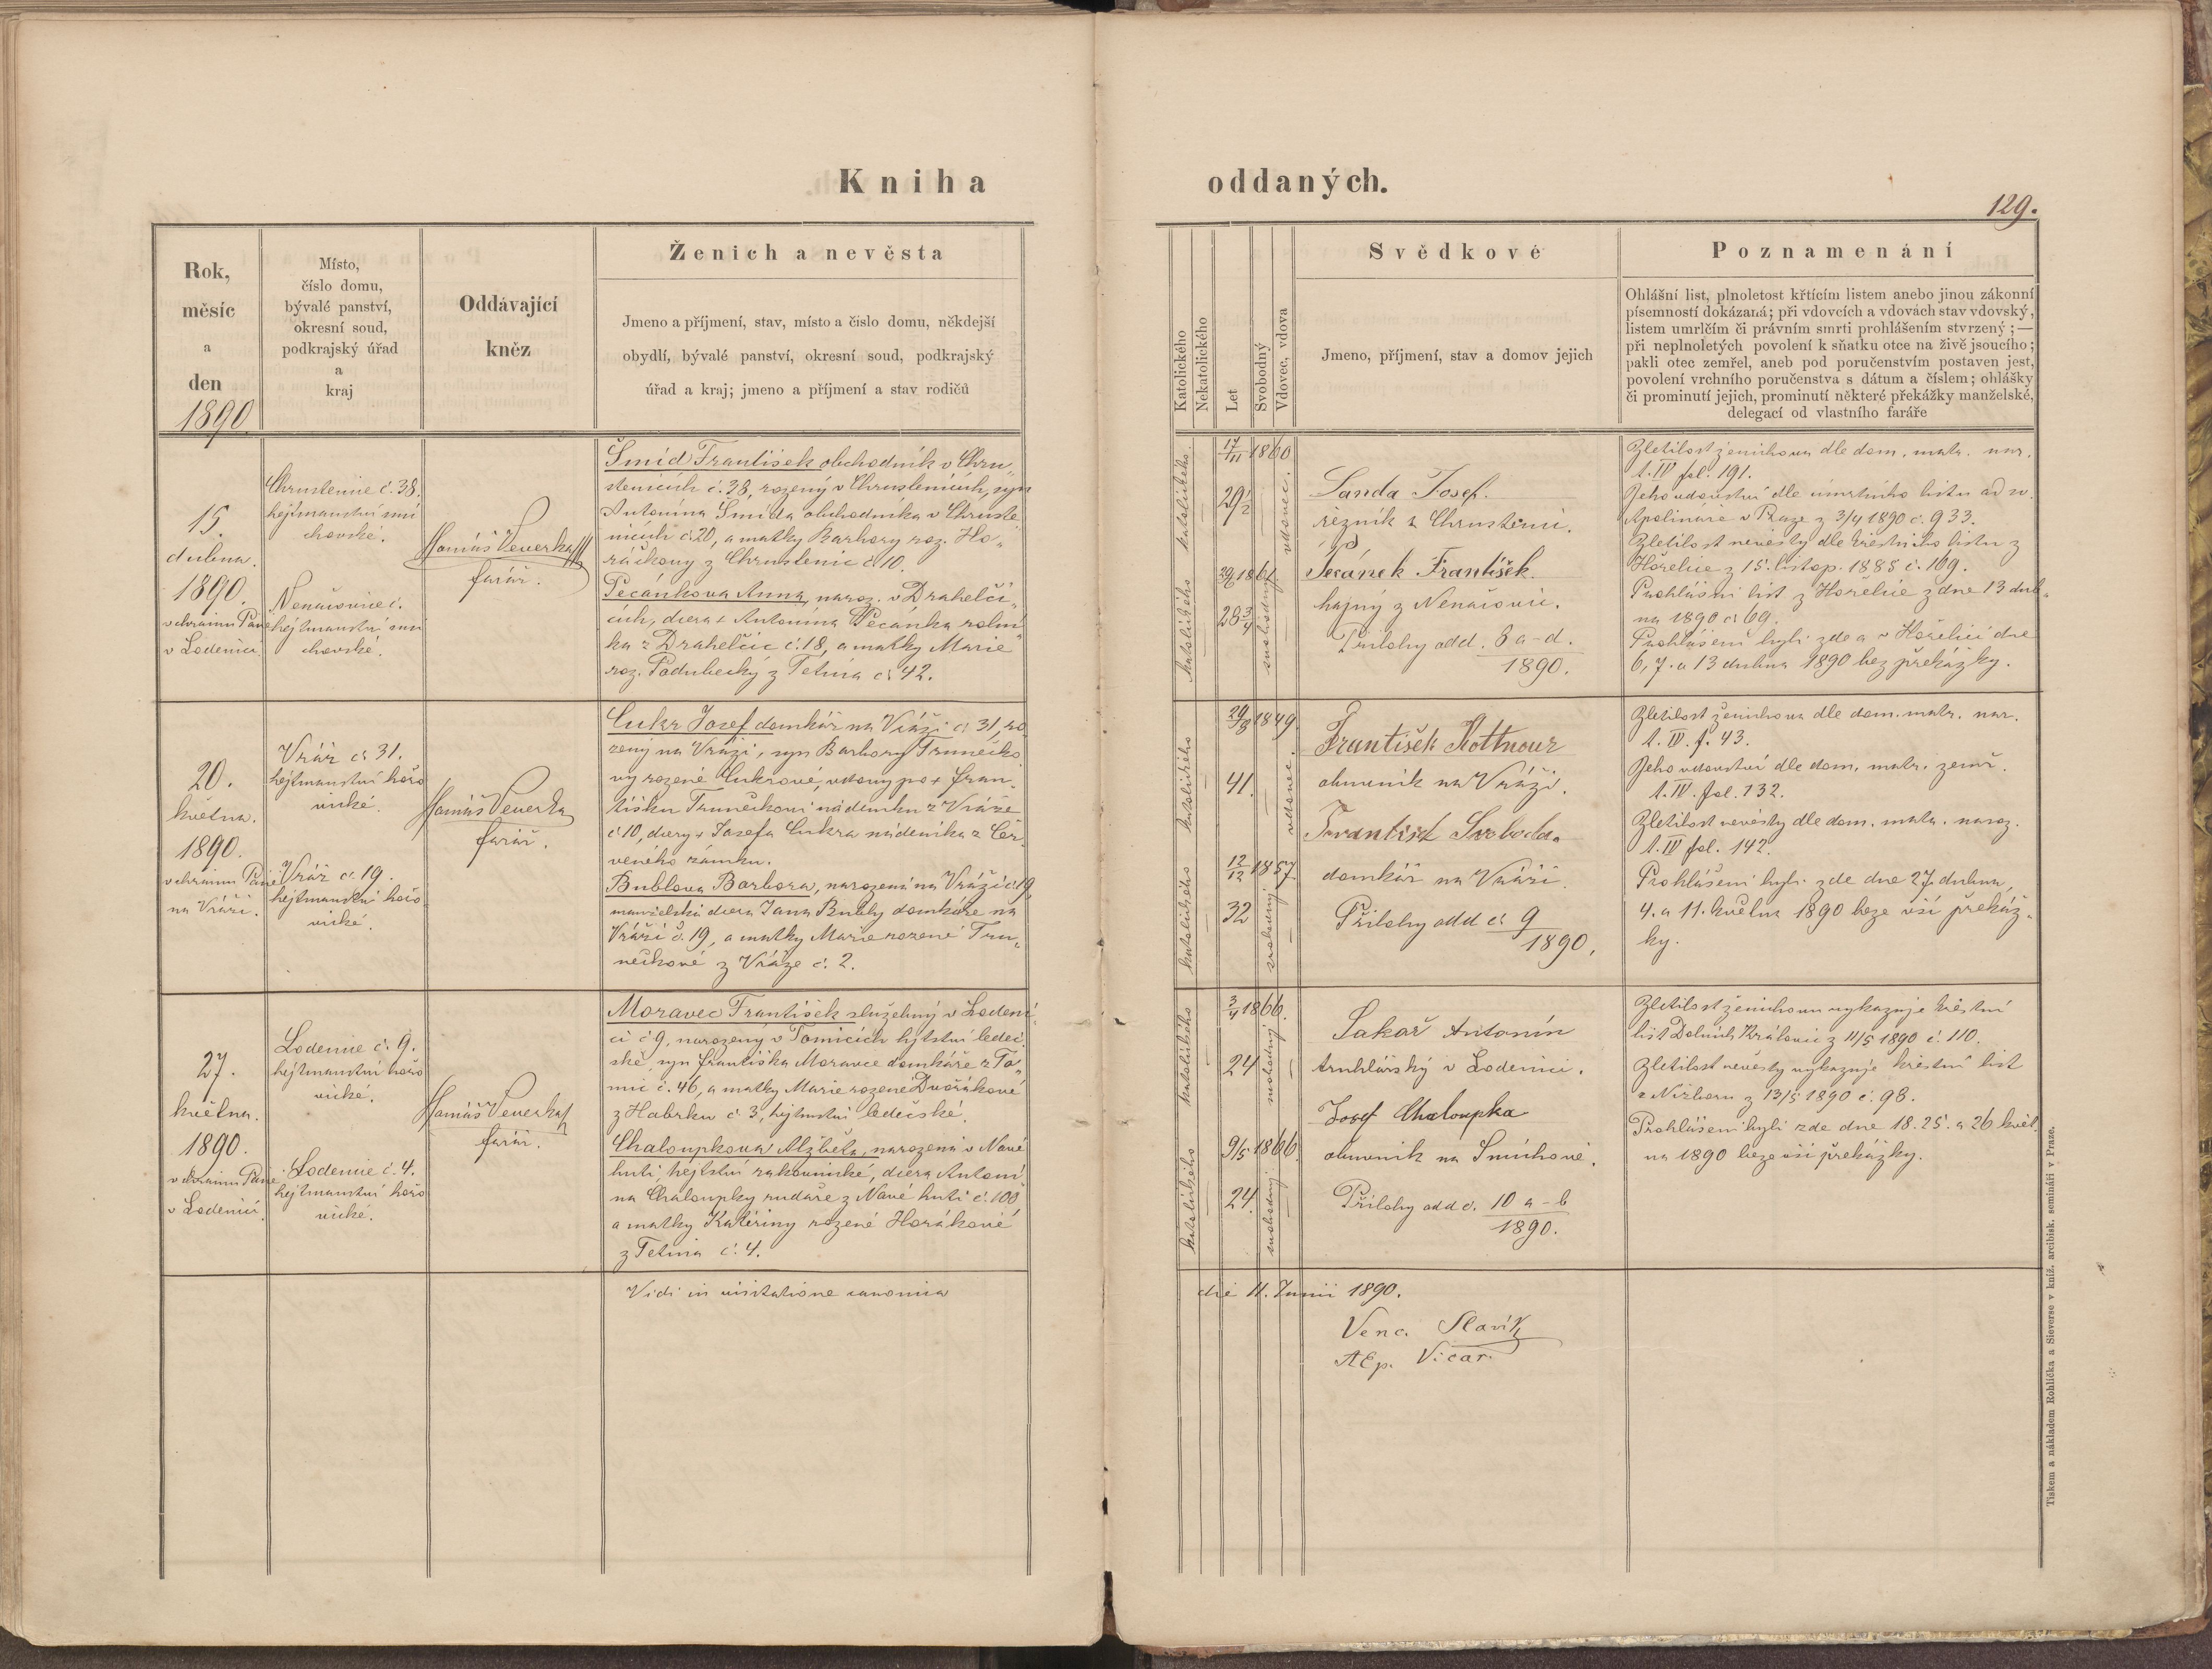 Kniha oddaných.
129.
Rok,
měsíc
a
den
1890
Místo,
číslo domu,
bývalé panství,
okresní soud,
podkrajský úřad
a
kraj
Oddávající
kněz
Ženich a nevěsta
Jmeno a příjmení, stav, místo a čislo domu, někdejší
obydlí, bývalé panství, okresní soud, podkrajský
úřad a kraj; jmeno a příjmení a stav rodičů
Katolického
Nekatolického
Let
Svobodný
Vdovec, vdova
Svědkové
Jmeno, příjmení, stav a domov jejich
Poznamenání
Ohlášní list, plnoletost křtícím listem anebo jinou zákonní
písemností dokázaná; při vdovcích a vdovách stav vdovský,
listem umrlčím či právním smrti prohlášením stvrzený; —
při neplnoletých povolení k sňatku otce na živě jsoucího;
pakli otec zemřel, aneb pod poručenstvím postaven jest,
povolení vrchního poručenstva s dátum a číslem; ohlášky
či prominutí jejich, prominutí některé překážky manželské,
delegací od vlastního faráře
15.
dubna.
1890.
v chrámu Páně
v Lodenici.
Chrustenice č. 38.
hejtmanství smí
chovské.
Nenačovice č.
hejtmanství smí
chovské.
Hamáš Veverka
farář.
Šmíd František obchodník v Chru„
stenicích č. 38, rozený v Chrustenicích, syn
Antonína Šmída obchodníka v Chruste
nicích č. 20, a matky Barbory roz. Ho„
ráčkovy z Chrustenic č 10.
Pecánkova Anna, naroz. v Drahelči„
cích, dcera † Antonína Pecánka rolní
ka z Drahelčic č. 18, a matky Marie
roz. Podubecký z Tetína č. 42.
katolického
katolického
17/11 1860
29 1/2
vdovec.
29/6 1861.
28 3/4
svobodný
Sanda Josef.
řezník z Chrustenic.
Pecánek František.
hajný z Nenačovic.
Přílohy odd. 8 a-d.
1890.
Zletilost ženichova dle dom. matr. nar.
t. IV fol. 191.
Jeho vdovství dle úmrtního listu od sv.
Apolináře v Praze z 3/4 1890 č. 933.
Zletilost nevěsty dle křestního listu z
Hořelice z 15. listop. 1885 č. 169.
Prohlášní list z Hořelic z dne 13 dub„
na 1890 č. 69.
Prohlášeni byli zde a v Hořelici dne
6, 7. a 13 dubna 1890 bez překážky.
20.
května.
1890.
v chrámu Páně
na Vráži.
Vráž č. 31.
hejtmanství hořo
vické.
Vráž č. 19.
hejtmanství hořo
vické.
Hamáš Veverka
farář.
Cukr Josef domkář na Vráži č. 31, ro
zený na Vráži, syn Barbory Trunečko
vy rozené Cukrové, vdovy po † Fran„
tišku Trunečkovi nádeníku z Vráže
č 10, dcery † Josefa Cukra nádeníka z Čer
veného zámku.
Bublova Barbora, narozená na Vráži č. 19,
manželská dcera Jana Bubly domkáře na
Vráži č. 19, a matky Marie rozené Tru„
nečkové z Vráže č. 2.
katolického
katolického
1849.
41.
vdovec.
12/12 1857.
32
svobodný
František Kottnour
obuvník na Vráži.
František Svoboda.
domkář na Vráži.
Přílohy odd č. 9
1890.
Zletilost ženichova dle dom. matr. nar.
t. IV. f. 43.
Jeho vdovství dle dom. matr. zemř.
t. IV. fol. 132.
Zletilost nevěsty dle dom. matr. naroz.
t. IV fol. 142.
Prohlášeni byli zde dne 27. dubna,
4. a 11. května 1890 beze vší překáž„
ky.
27.
května.
1890.
v chrámu Páně
v Lodenici.
Lodenice č. 9.
hejtmanství hořo
vické.
Lodenice č. 4.
hejtmanství hořo
vické.
Hamáš Veverka
farář.
Moravec František služebný v Lodeni
ci č 9, narozený v Tomicích hjtství ledeč
ské, syn Františka Moravce domkáře z To„
mic č. 46, a matky Marie rozené Dvořákové
z Habrku č 3, hejtmství ledečské.
Chaloupkova Alžběta, narozená v Nové
huti, hejtství rakovnické, dcera Antoní
na Chaloupky rudaře z Nové huti č. 100
a matky Kateřiny rozené Horákové
z Tetína č. 4.
katolického
katolického
3/4 1866.
24
svobodný
9/5 1866.
24.
svobodný.
Sakař Antonín
truhlářský v Lodenici.
Josef Chaloupka
obuvník na Smíchově.
Přílohy odd č. 10 a-b
1890.
Zletilost ženichovu vykazuje křestní
list Dolních Královic z 11/5 1890 č. 110.
Zletilost nevěsty vykazuje křestní list
z Nižboru z 13/5 1890 č. 98.
Prohlášeni byli zde dne 18. 25. a 26 květ.
na 1890 beze vší překážky.
Vidi in visitatione canonica
die 11. Junii 1890.
Venc. Slavík
AEp. Vicar.
Tiskem a nákladem Rohlíčka a Sieverse v kníž. arcibisk. semináři v Praze.